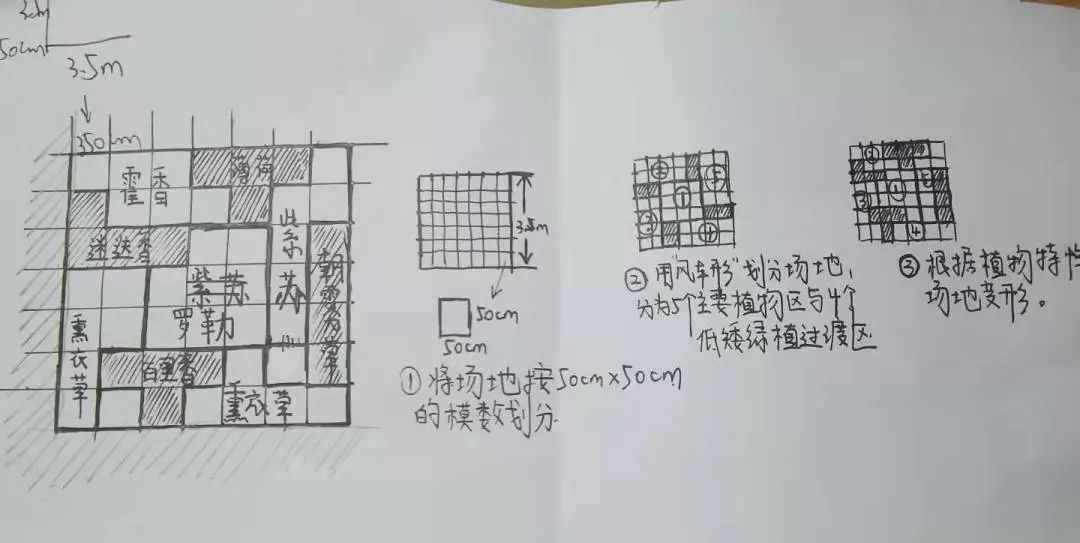 50cm
3.5m
350cm
霍香
薄荷
迷迭香
紫苏
紫苏
罗勒
薰衣草
百里香
薰衣草
3.5m
50cm
50cm
①将场地按50cm×50cm
的模数划分
② ⑤
①
③ ④
②用"风车形"划分场地,
分为5个主要植物区与4个
低矮绿植过渡区
②
③ ①
④
③根据植物特性
场地变形。